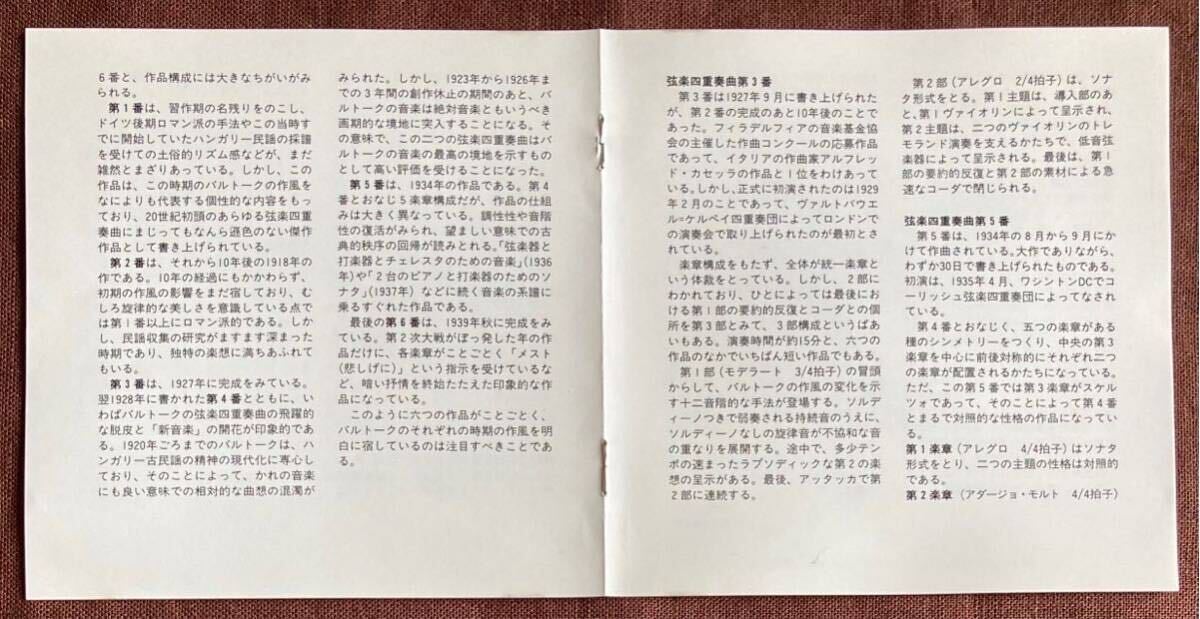 6番と、作品構成には大きなちがいがみ
られる。
第1番は、習作期の名残りをのこし、
ドイツ後期ロマン派の手法やこの当時す
でに開始していたハンガリー民謡の採譜
を受けての土俗的リズム感などが、まだ
雑然とまざりあっている。しかし、この
作品は、この時期のバルトークの作風を
なによりも代表する個性的な内容をもっ
ており、20世紀初頭のあらゆる弦楽四重
奏曲にまじってもなんら遜色のない傑作
作品として書き上げられている。
第2番は、それから10年後の1918年の
作である。10年の経過にもかかわらず、
初期の作風の影響をまだ宿しており、む
しろ旋律的な美しさを意識している点で
は第1番以上にロマン派的である。しか
し、民謡収集の研究がますます深まった
時期であり、独特の楽想に満ちあふれて
もいる。
第3番は、1927年に完成をみている。
翌1928年に書かれた第4番とともに、い
わばバルトークの弦楽四重奏曲の飛躍的
な脱皮と「新音楽」の開花が印象的であ
る。1920年ごろまでのバルトークは、ハ
ンガリー古民謡の精神の現代化に専心し
ており、そのことによって、かれの音楽
にも良い意味での相対的な曲想の混濁が
みられた。しかし、1923年から1926年ま
での3年間の創作休止の期間のあと、バ
ルトークの音楽は絶対音楽ともいうべき
画期的な境地に突入することになる。そ
の意味で、この二つの弦楽四重奏曲はバ
ルトークの音楽の最高の境地を示すもの
として高い評価を受けることになった。
第5番は、1934年の作品である。第4
番とおなじ5楽章構成だが、作品の仕組
みは大きく異なっている。調性性や音階
性の復活がみられ、望ましい意味での古
典的秩序の回帰が読みとれる。「弦楽器と
打楽器とチェレスタのための音楽」(1936
年)や「2台のピアノと打楽器のためのソ
ナタ」(1937年)などに続く音楽の系譜に
乗るすぐれた作品である。
最後の第6番は、1939年秋に完成をみ
ている。第2次大戦がぼっ発した年の作
品だけに、各楽章がことごとく「メスト
(悲しげに)」という指示を受けているな
ど、暗い抒情を終始たたえた印象的な作
品になっている。
このように六つの作品がことごとく、
バルトークのそれぞれの時期の作風を明
白に宿しているのは注目すべきことであ
る。
弦楽四重奏曲第3番
第3番は1927年9月に書き上げられた
が、第2番の完成のあと10年後のことで
あった。フィラデルフィアの音楽基金協
会の主催した作曲コンクールの応募作品
であって、イタリアの作曲家アルフレッ
ド・カセッラの作品と1位をわけあって
いる。しかし、正式に初演されたのは1929
年2月のことであって、ヴァルトバウエ
ル=ケルペイ四重奏団によってロンドンで
の演奏会で取り上げられたのが最初とさ
れている。
楽章構成をもたず、全体が統一楽章と
いう体裁をとっている。しかし、2部に
わかれており、ひとによっては最後にお
ける第1部の要約的反復とコーダとの個
所を第3部とみて、3部構成というばあ
いもある。演奏時間が約15分と、六つの
作品のなかでいちばん短い作品でもある。
第1部(モデラート 3/4拍子)の冒頭
からして、バルトークの作風の変化を示
す十二音階的な手法が登場する。ソルデ
ィーノつきで弱奏される持続音のうえに、
ソルディーノなしの旋律音が不協和な音
の重なりを展開する。途中で、多少テン
ポの速まったラプソディックな第2の楽
想の呈示がある。最後、アッタッカで第
2部に連続する。
第2部(アレグロ 2/4拍子)は、ソナ
タ形式をとる。第1主題は、導入部のあ
と、第1ヴァイオリンによって呈示され、
第2主題は、二つのヴァイオリンのトレ
モランド演奏を支えるかたちで、低音弦
楽器によって呈示される。最後は、第1
部の要約的反復と第2部の素材による急
速なコーダで閉じられる。
弦楽四重奏曲第5番
第5番は、1934年の8月から9月にか
けて作曲されている。大作でありながら、
わずか30日で書き上げられたものである。
初演は、1935年4月、ワシントンDCでコ
ーリッシュ弦楽四重奏団によってなされ
ている。
第4番とおなじく、五つの楽章がある
種のシンメトリーをつくり、中央の第3
楽章を中心に前後対称的にそれぞれ二つ
の楽章が配置されるかたちになっている。
ただ、この第5番では第3楽章がスケル
ツォであって、そのことによって第4番
とまるで対照的な性格の作品になってい
る。
第1楽章(アレグロ 4/4拍子)はソナタ
形式をとり、二つの主題の性格は対照的
である。
第2楽章(アダージョ・モルト 4/4拍子)